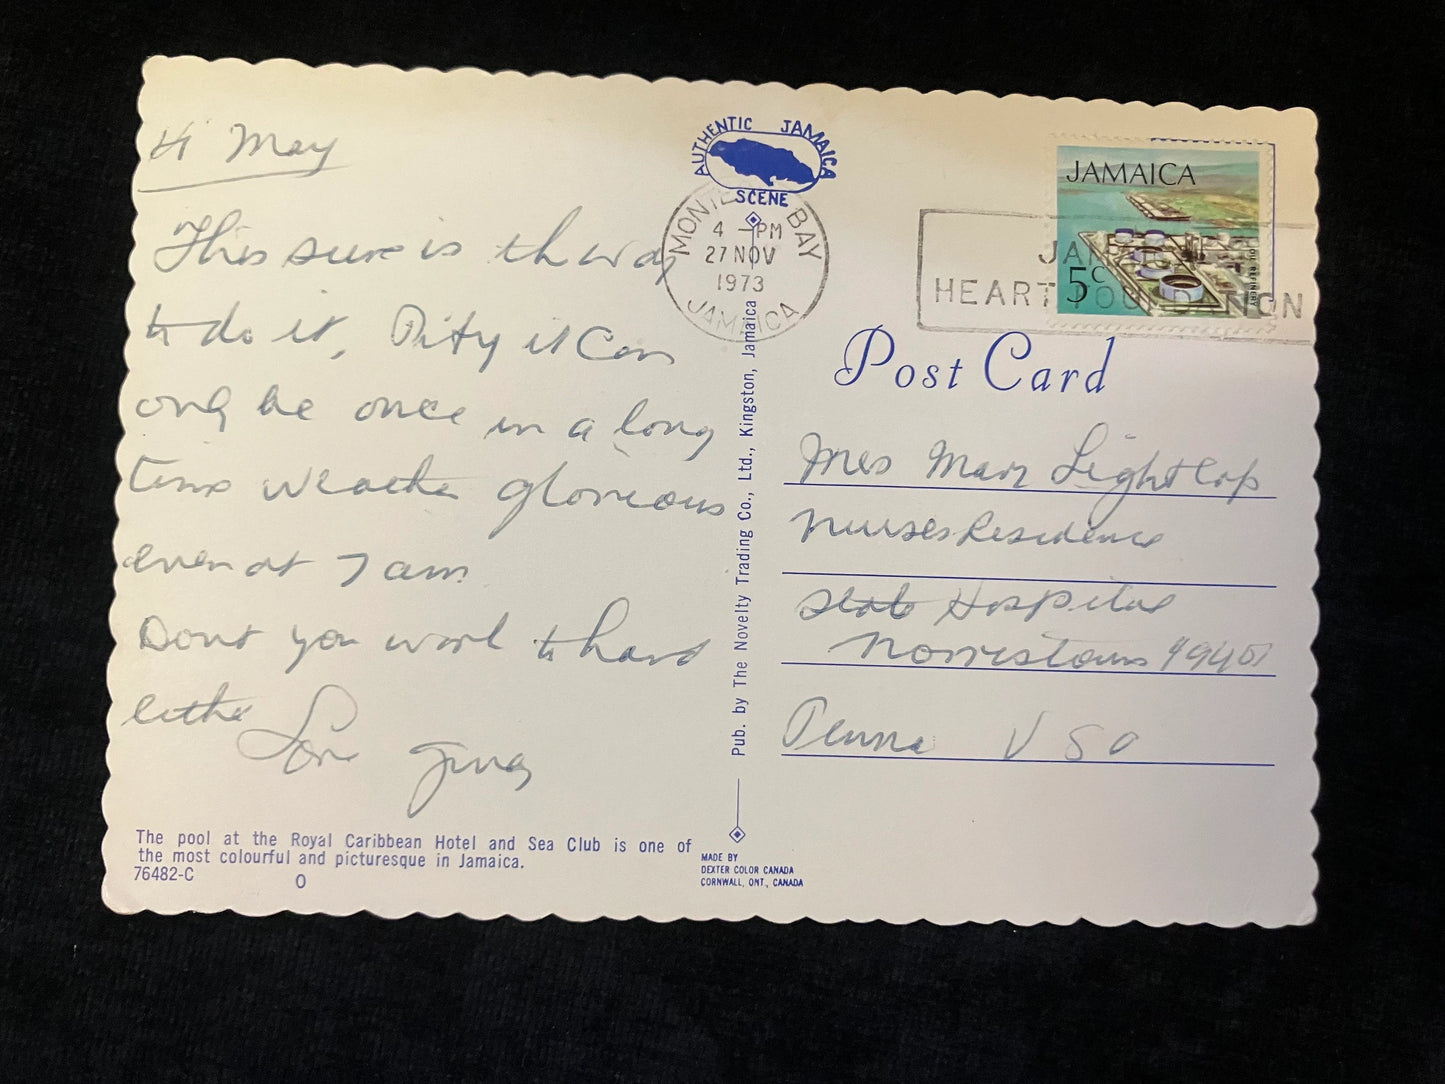 Hi May
This sure is th way
to do it, Pity it Can
only be once in a long
time weather glorious
even at 7 am
Dont you work to hard
either
Love
The pool at the Royal Caribbean Hotel and Sea Club is one of
the most colourful and picturesque in Jamaica.
76482-C
O
AUTHENTIC JAMAICA
SCENE
MONTEGO BAY
4 - PM
27 NOV
1973
JAMAICA
Pub. by The Novelty Trading Co., Ltd., Kingston, Jamaica
MADE BY
DEXTER COLOR CANADA
CORNWALL, ONT., CANADA
JAMAICA
5c
OIL REFINERY
JAMAICA
HEART FOUNDATION
Post Card
Mrs Mary Lightcap
Nurses Residence
State Hospital
Norristown 19401
Penna USA